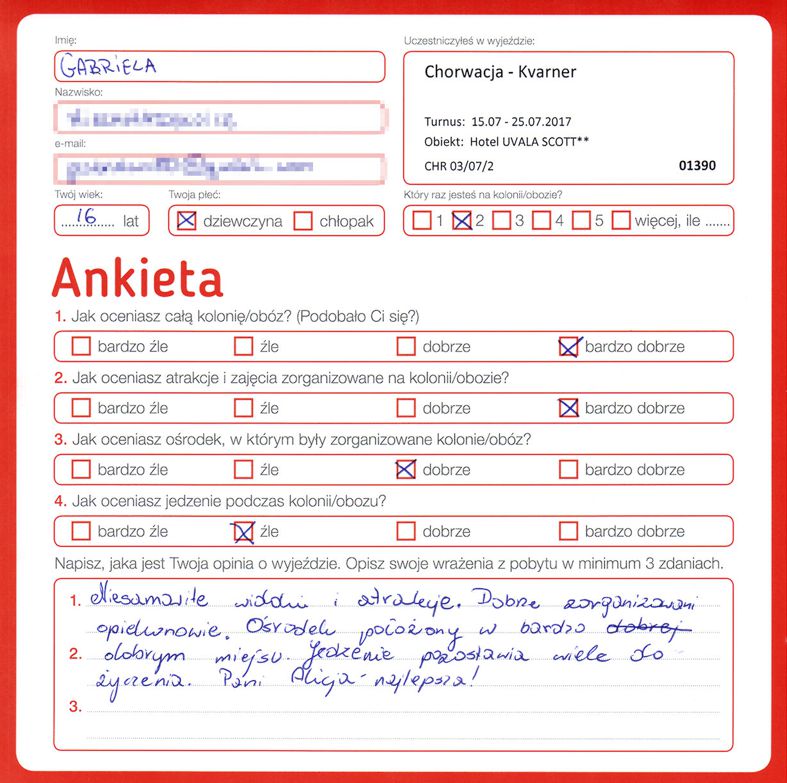 Imię:
GABRIELA
Nazwisko:
e-mail:
Twój wiek:
16 lat
Twoja płeć:
dziewczyna chłopak
Uczestniczyłeś w wyjeździe:
Chorwacja - Kvarner
Turnus: 15.07 - 25.07.2017
Obiekt: Hotel UVALA SCOTT**
CHR 03/07/2 01390
Który raz jesteś na kolonii/obozie?
1 2 3 4 5 więcej, ile .......
Ankieta
1. Jak oceniasz całą kolonię/obóz? (Podobało Ci się?)
bardzo źle źle dobrze bardzo dobrze
2. Jak oceniasz atrakcje i zajęcia zorganizowane na kolonii/obozie?
bardzo źle źle dobrze bardzo dobrze
3. Jak oceniasz ośrodek, w którym były zorganizowane kolonie/obóz?
bardzo źle źle dobrze bardzo dobrze
4. Jak oceniasz jedzenie podczas kolonii/obozu?
bardzo źle źle dobrze bardzo dobrze
Napisz, jaka jest Twoja opinia o wyjeździe. Opisz swoje wrażenia z pobytu w minimum 3 zdaniach.
1. Niesamowite widoki i atrakcje. Dobrze zorganizowani
opiekunowie. Ośrodek położony w bardzo dobrej
2. dobrym miejscu. Jedzenie pozostawia wiele do
życzenia. Pani Alicja - najlepsza!
3.